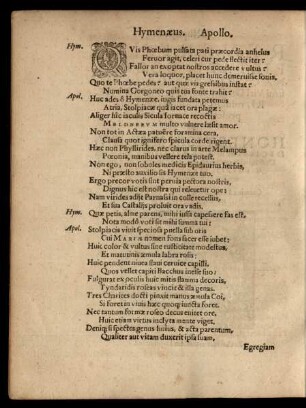 Hymenæus. Apollo.
Hym. QVis Phœbum pulsata pati præcordia anhelus
Feruor agit, celeri cur pede flectit iter?
Fallor an exoptat nostros accedere vultus?
Vera loquor, placet hunc demeruisse
Quo te Phœbe pedes? aut quæ vis gressibus instat?
Numina Gorgoneo quis tua fonte trahit?
Apol. Huc ades ô Hymenæe, iugis fundata petemus
Atria, Stolpiacæ quà iacet ora plagæ:
Aliger hîc iaculis Sicula fornace recoctis
multo vulnere læsit amor.
Non tot in Actæa patoêre foramina cera,
Clausa quot ignifero spicula corde gerit.
Hæc non Phyllirides, nec clarus in arte Melampus
Pœonia, manibus vellere tela potest.
Non ego, non soboles medicis Epidaurius herbis,
Ni præsto auxilio sit Hymenæe tuo,
Ergo precor votis sint peruia pectora nostris,
Dignus hic est nostra qui releuetur ope:
Nam virides adijt Parnassi in colle recessus,
Et sua Castalijs proluit ora vadis.
Hym. Quæ petis, alme parens, mihi iussa capessere fas est,
Nota modò vnit sit mihi summa tui:
Apol. Stolpiacis viuit speciosa puella sub oris
Cui MARIA nomen fons sacer esse iubet:
Huic color & vultus sine rusticitate modestus,
Et matutinis æmula labra rosis:
Huic pendent niuea flaui ceruice capilli,
Quos vellet capiti Bacchus inesse suo:
Fulgurat ex oculis huic mitis flamma decoris,
Tyndaridis roseas vincit & illa genas.
Tres Charites docti pinxit manus æmula Coi,
Si foret is viuis hæc quoque juncta foret.
Nec tantum formæ roseo decus eniter ore,
Huic etiam virtus inclyta mente viget.
Deniq; si spectes genus huius, & acta parentum,
Qualiter aut vitam duxerit ipsa suam,
Egregiam